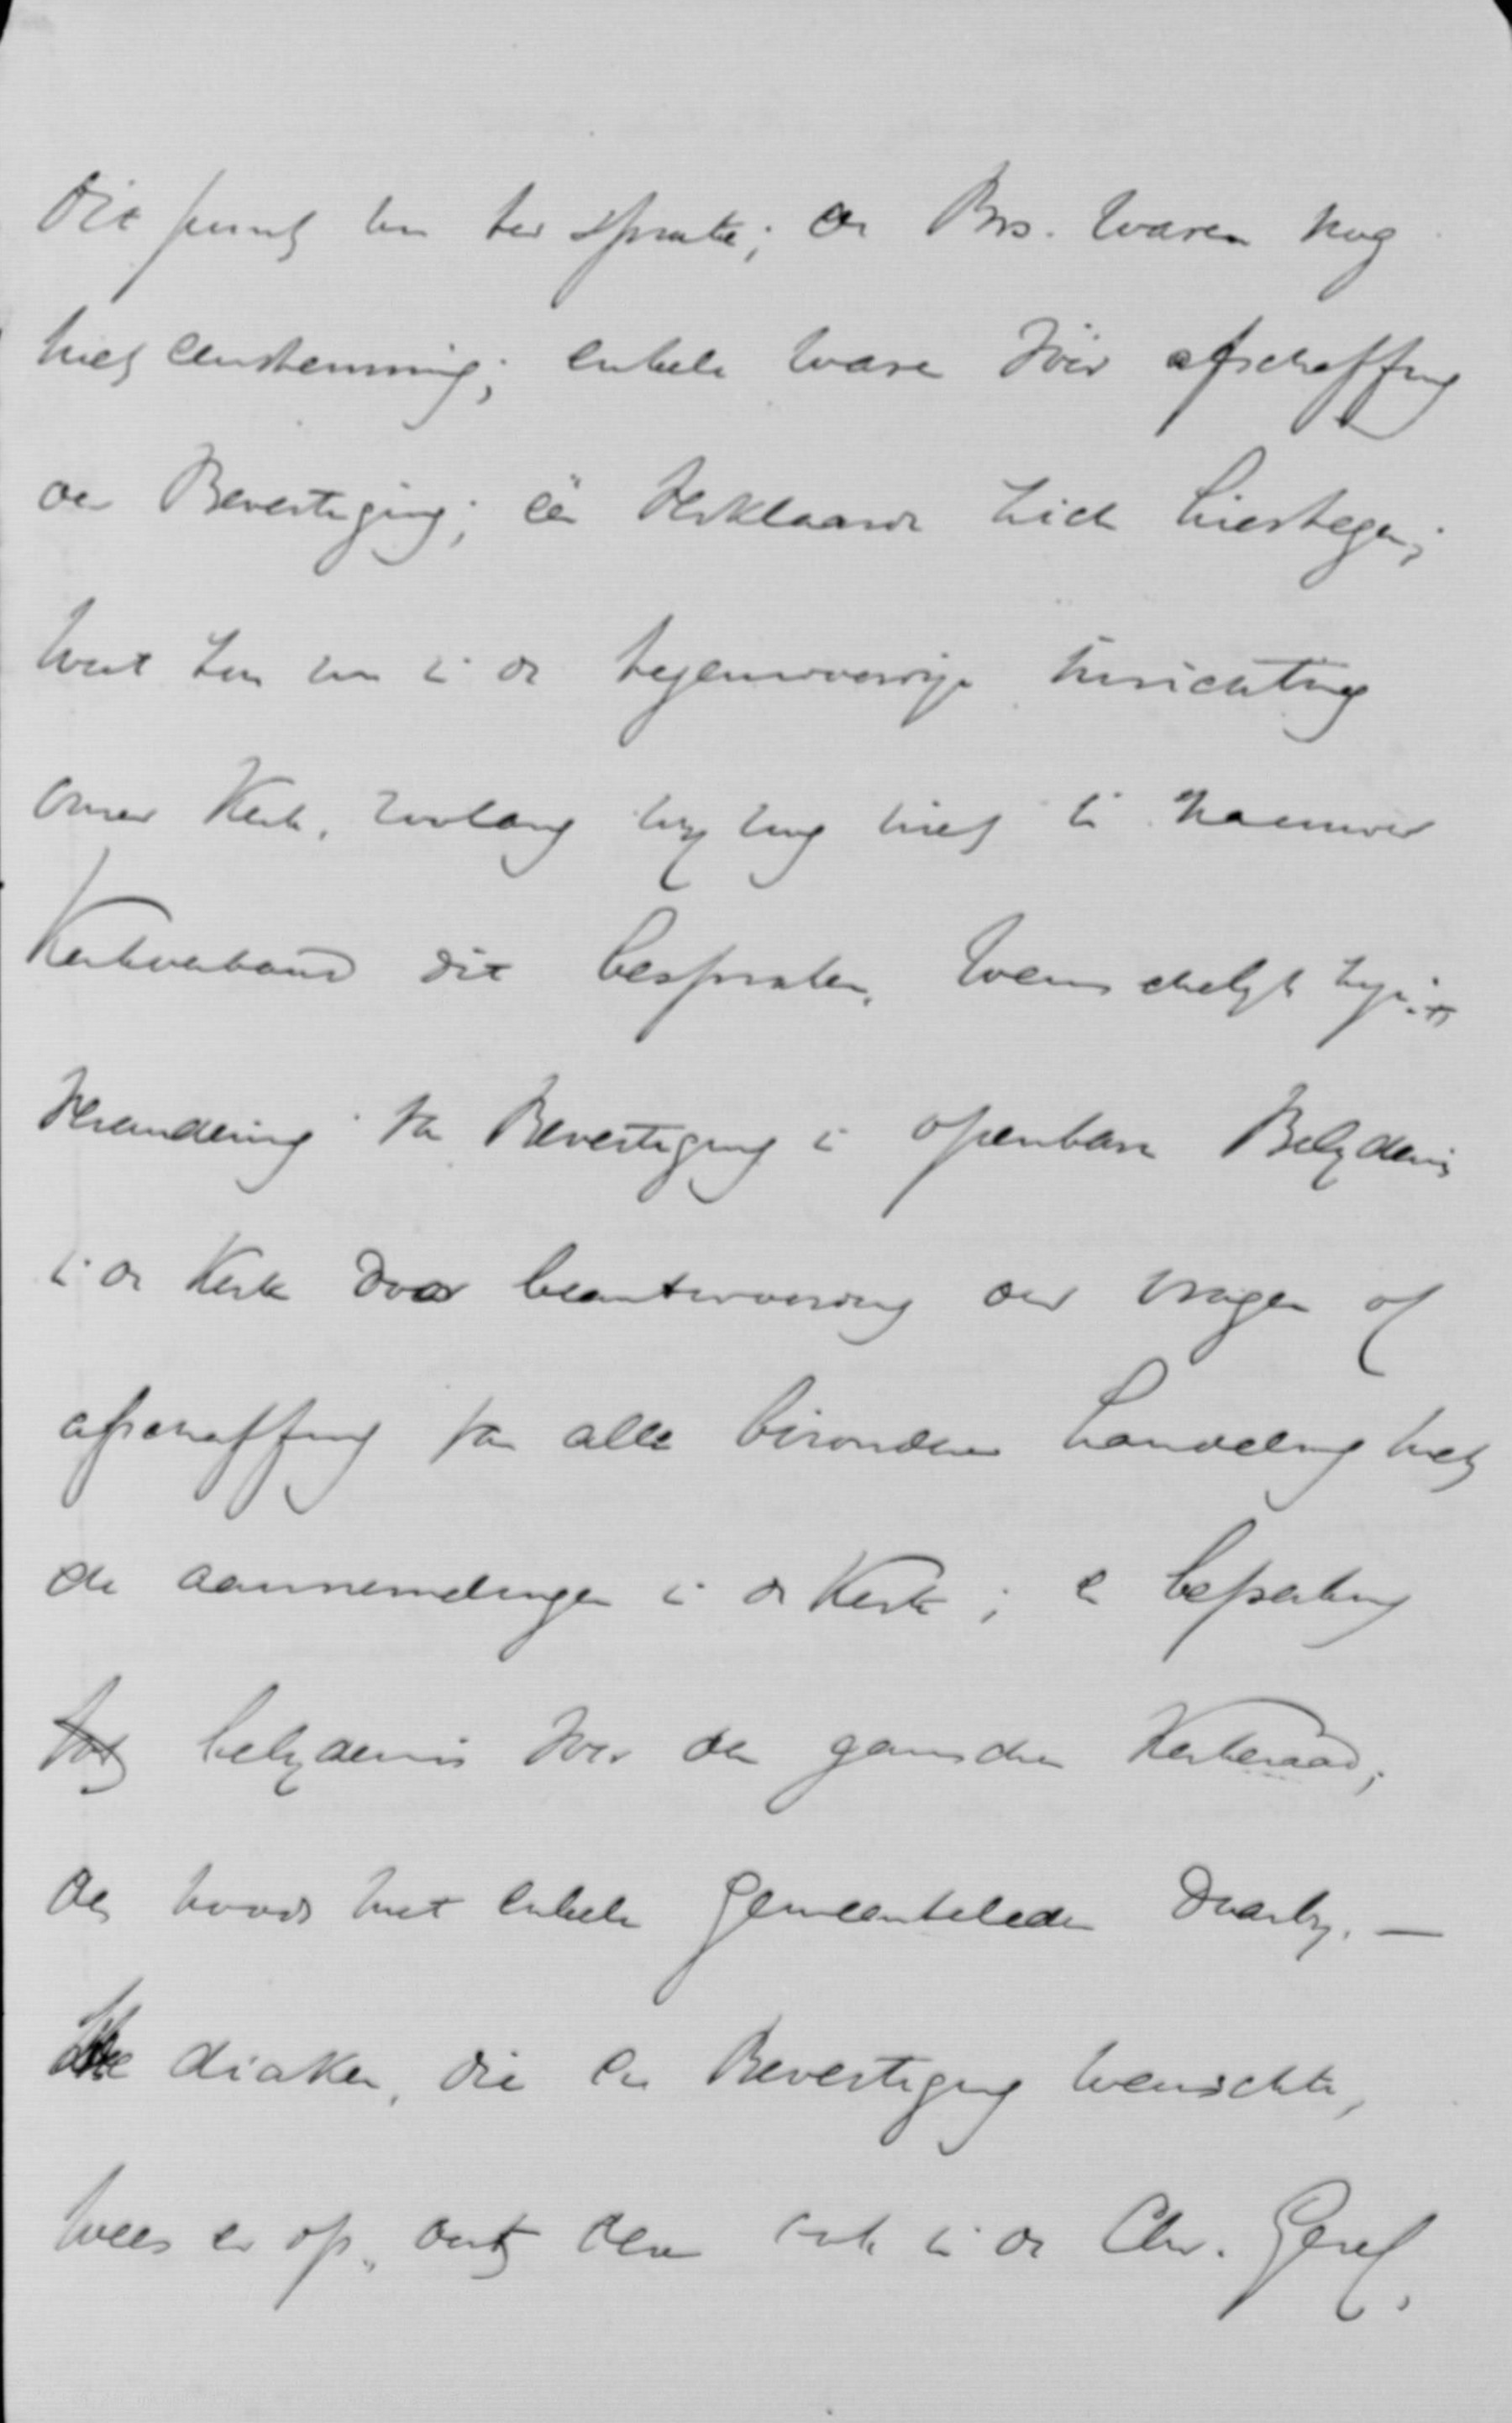 Dit punt ter sprake; de Brs. waren nog
niet eenstemmig; enkele waren vóór afschaffing
der Bevestiging; één verklaarde zich hiertegen;
wat in de tegenwoordige inrichting
onzer Kerk, zoolang wij nog niet in nauwer
Kerkverband dit bespraken, wenschelijk zij:
Verandering van Bevestiging in openbare Belijdenis
in de Kerk door beantwoording der vragen of
afschaffing van alle bizondere handeling met
de aannemelingen in de Kerk; en bepaling
tot belijdenis voor den ganschen Kerkeraad;
des noods met enkele gemeenteleden daarbij. —
diaken, die de Bevestiging wenschte,
wees er op, dat deze ook in de Chr. Geref.